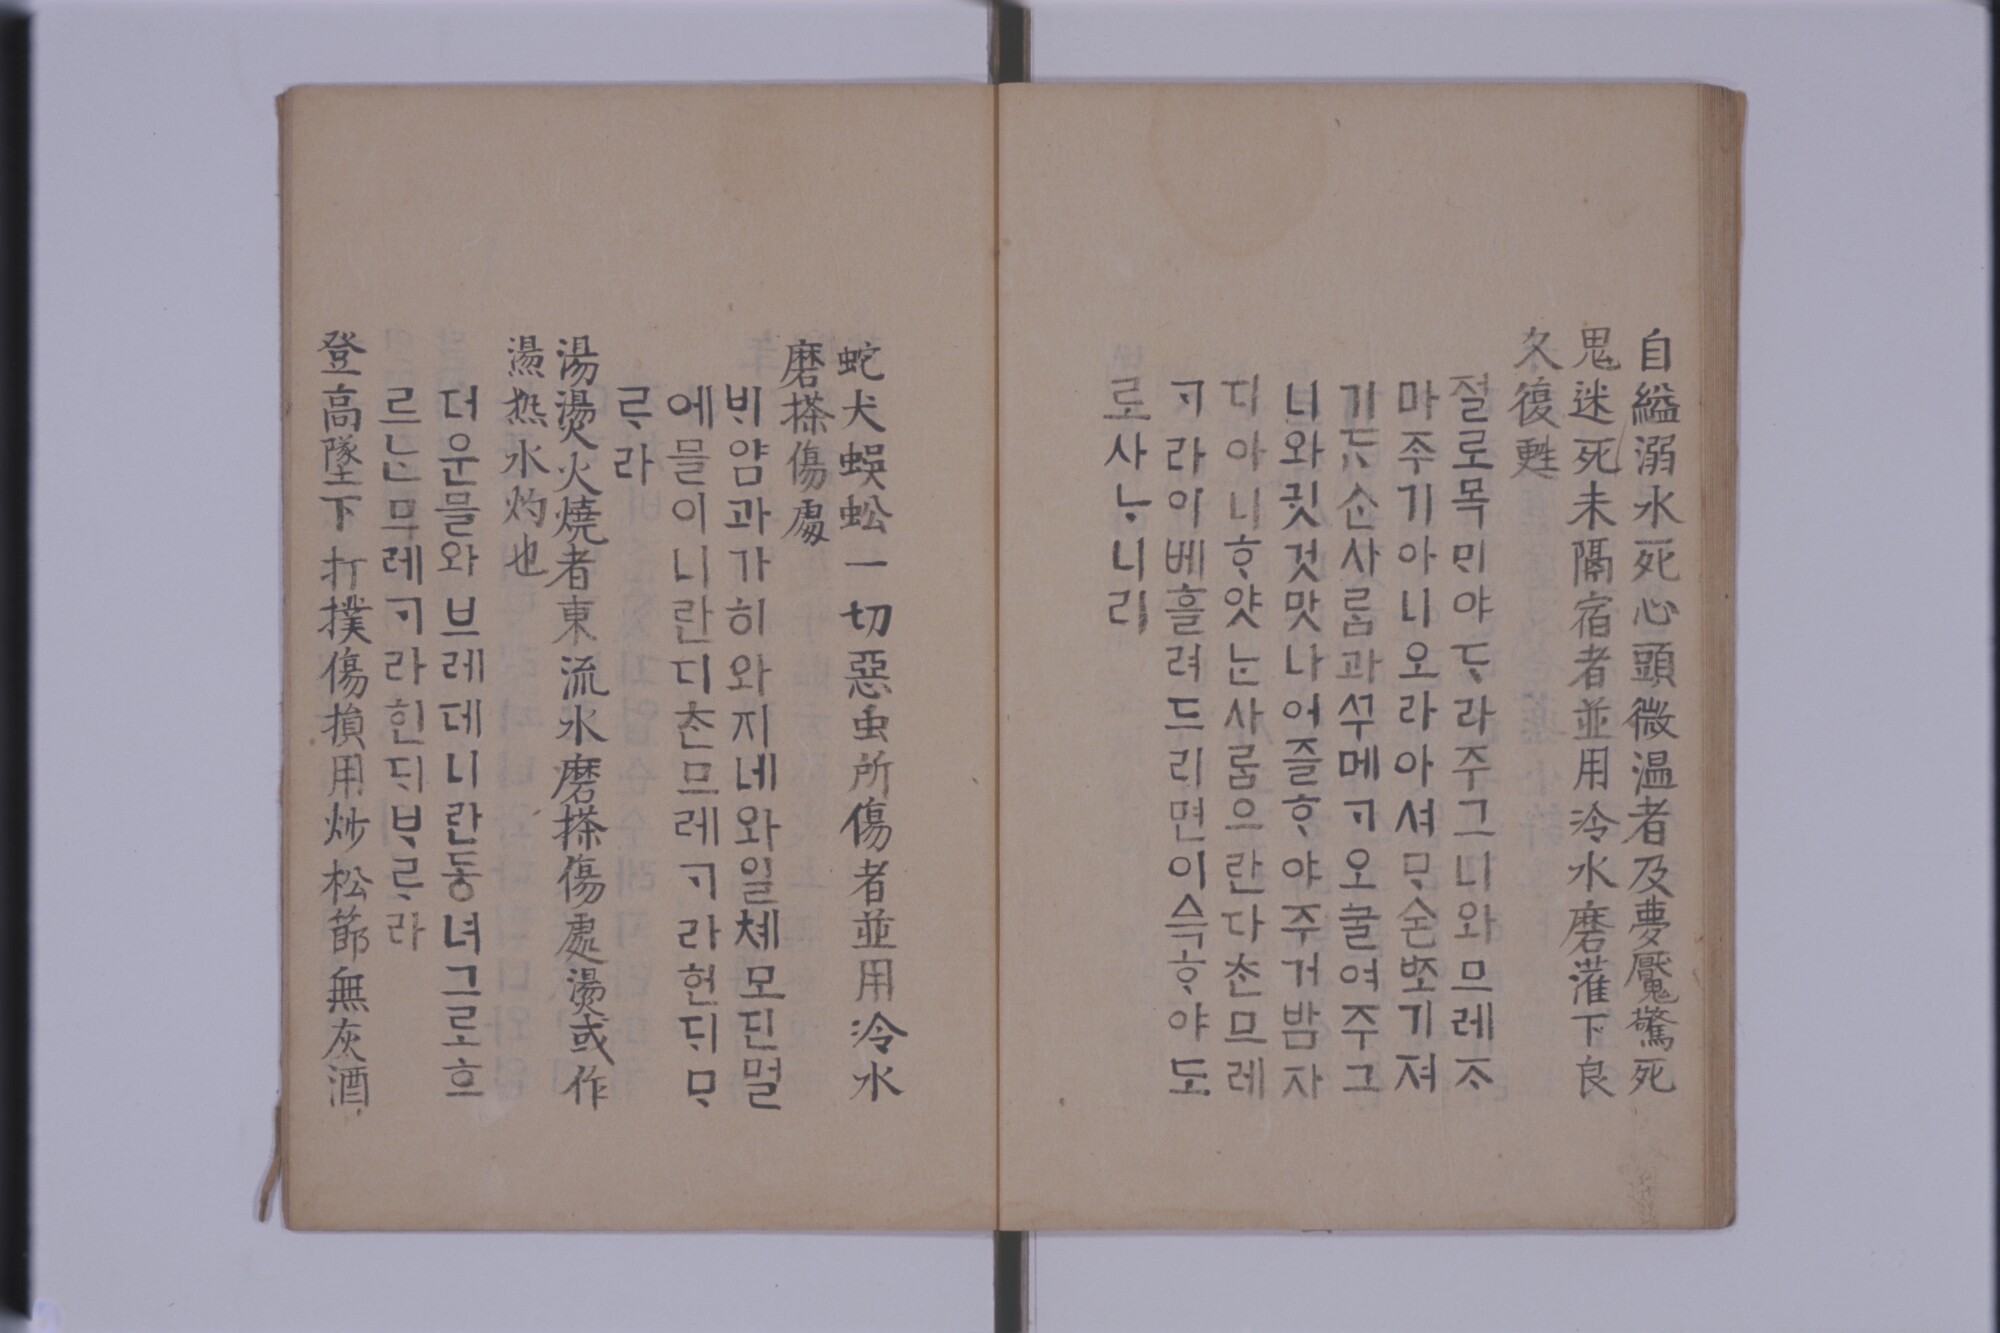 自縊溺水死心頭微温者及夢魘驚死
鬼迷死未隔宿者並用冷水磨灌下良
久復甦
절로목ᄆᆡ야ᄃᆞ라주그니와므레ᄌᆞ
마주기아니오라아셔ᄆᆞᅀᆞᆷᄧᅩ기져
기ᄃᆞᄉᆞᆫ사ᄅᆞᆷ과ᄭᅮ메ᄀᆞ오ᄭᅮᆯ여주그
니와귓것맛나어즐ᄒᆞ야주거밤자
디아니ᄒᆞ얏ᄂᆞᆫ사ᄅᆞᆷ으란다ᄎᆞᆫ므레
ᄀᆞ라이베흘려드리면이ᄉᆞᆨᄒᆞ야도
로사ᄂᆞ니라
蛇犬蜈蚣一切惡虫所傷者並用冷水
磨搽傷處
ᄇᆞ얌과가히와지네와일체모딘벌
에믈이니란디ᄎᆞᆫ므레ᄀᆞ라헌ᄃᆡᄇᆞ
ᄅᆞ라
湯燙火燒者東流水磨搽傷處燙或作
盪熱水灼也
더운믈와브레데니란동녀그로흐
르ᄂᆞᆫ므레ᄀᆞ라힌ᄃᆡᄇᆞᄅᆞ라
登高墜下打撲傷損用炒松節無灰酒